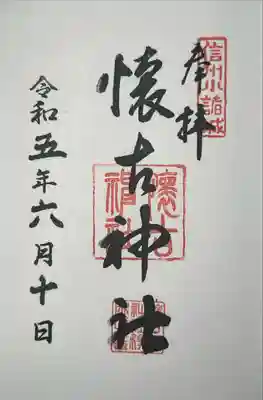 信州小諸城
奉拝
懐古神社
懐古神社
令和五年六月十日